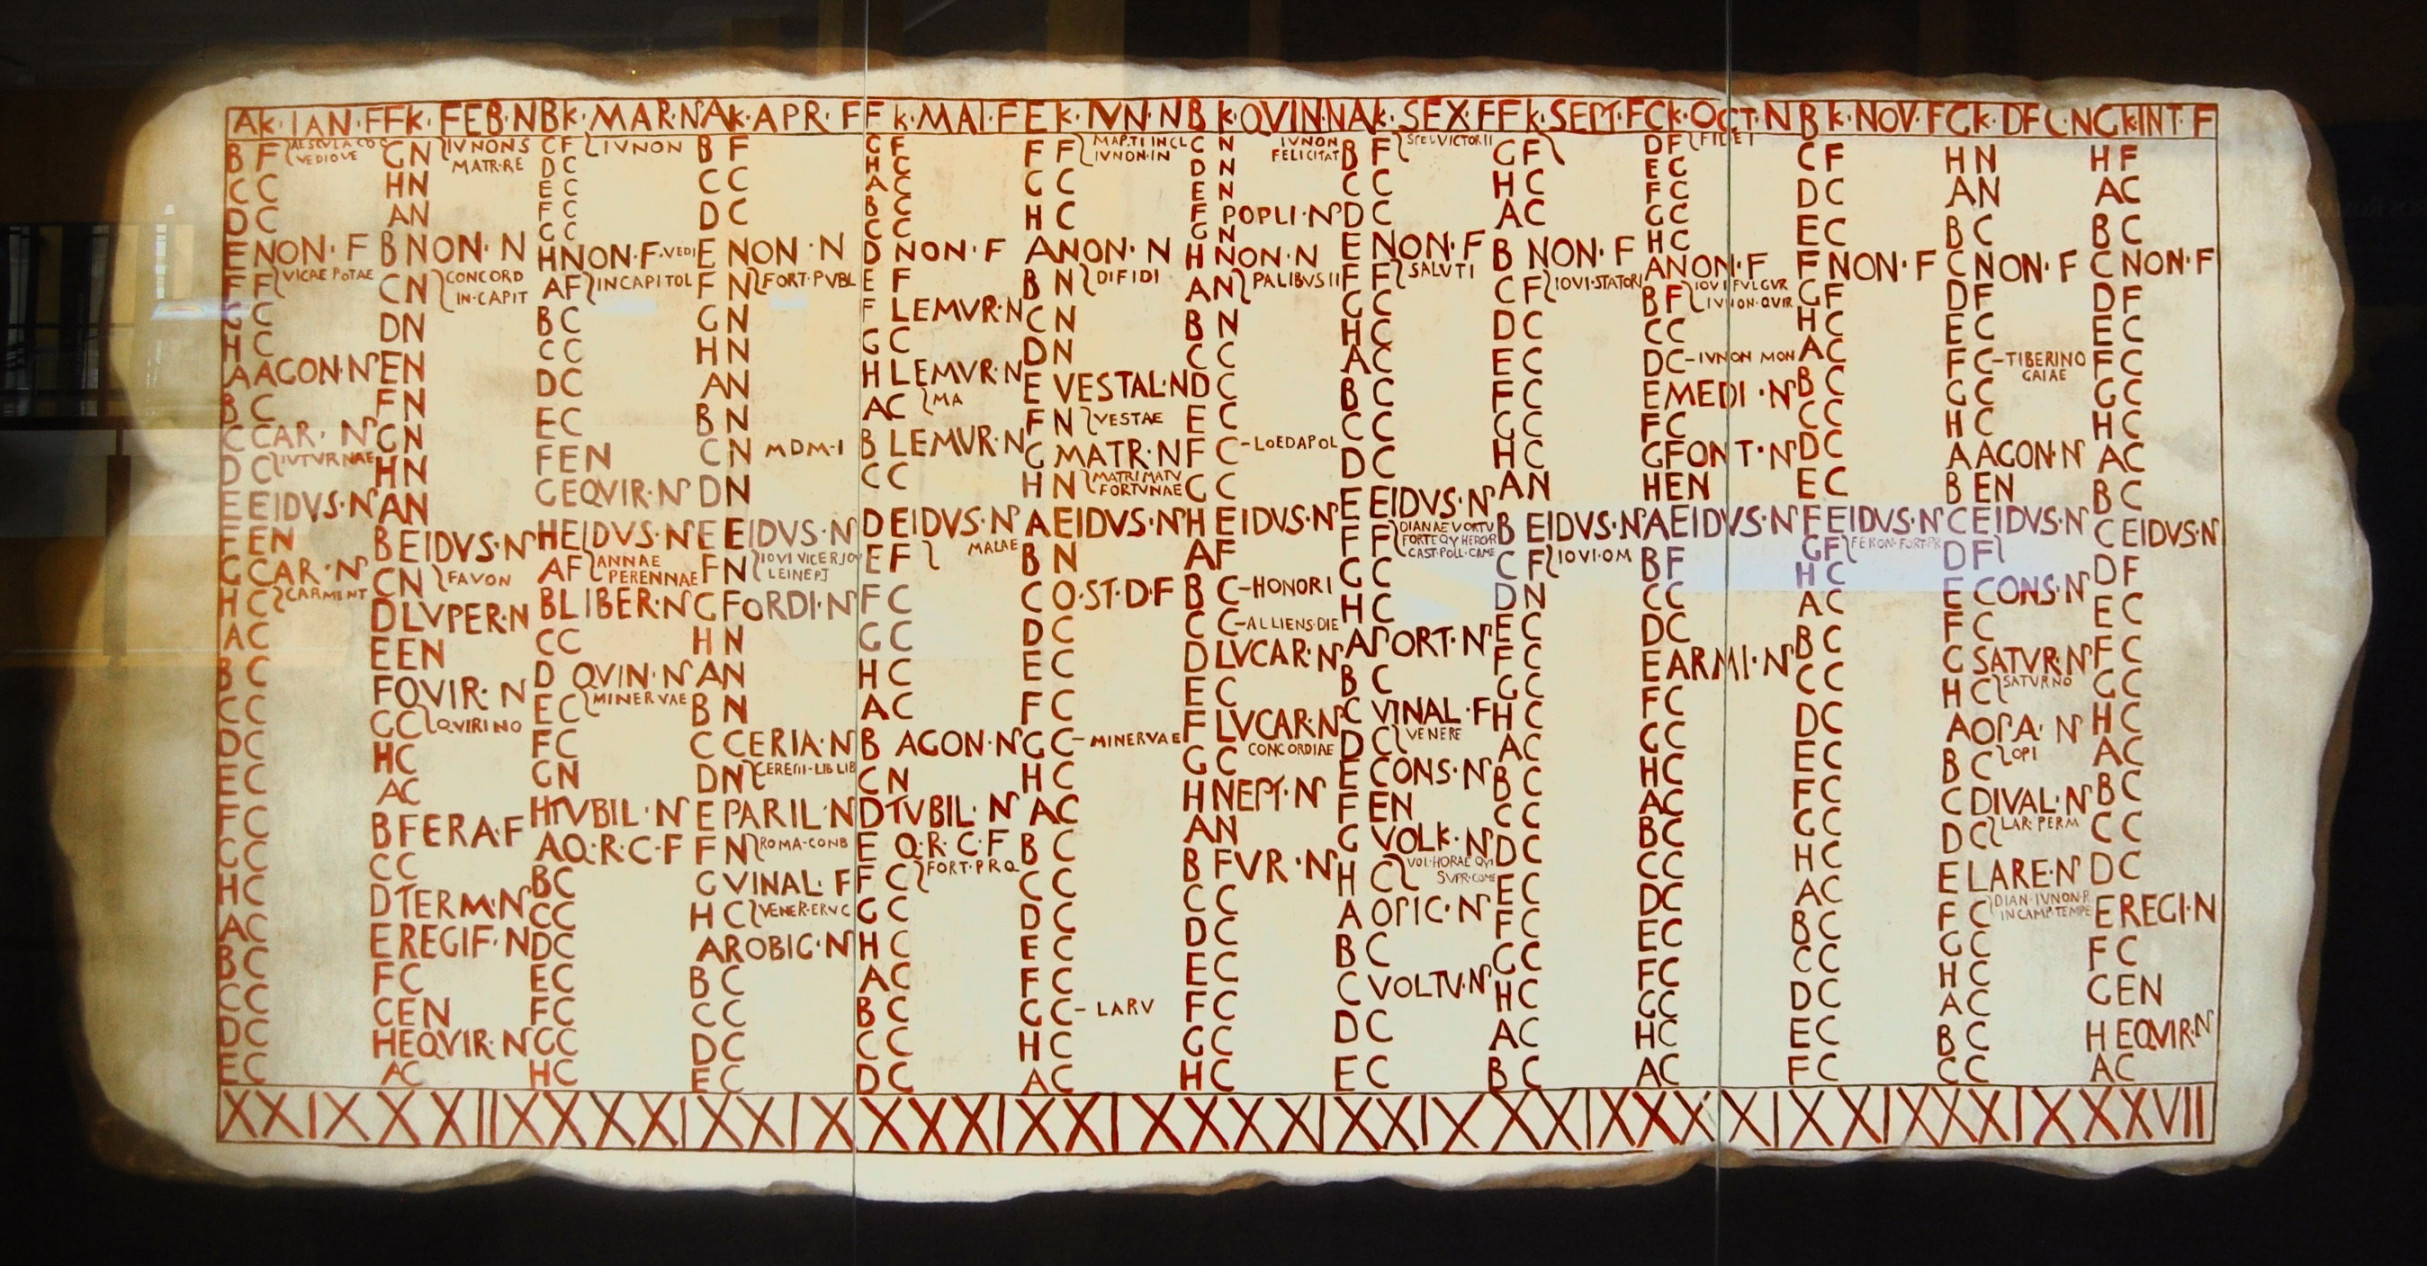 AK·IAN·F FK·FEB·N BK·MAR·N AK·APR·F FK·MAI·F EK·IVN·N BK·QVIN·N AK·SEX·F FK·SEPT·F CK·OCT·N BK·NOV·F GK·DEC·N GK·INT·F
B F
VEDIOVE
C C
D C
E NON·F
F F VICAE POTAE
G C
H C
A AGON·N
B C
C CAR·N
D C IVTVRNAE
E EIDVS·N
F EN
G CAR·N
H C CARMENT
A C
B C
C C
D C
E C
F C
G C
H C
A C
B C
C C
D C
E C
G N IVNONS
MATR·RE
H N
A N
B NON·N
C N CONCORD
IN·CAPIT
D N
E N
F N
G N
H N
A N
B EIDVS·N
C N FAVON
D LVPER·N
E EN
F QVIR·N
G C QVIRINO
H C
A C
B FERA·F
C C
D TERM·N
E REGIF·N
F C
G EN
H EQVIR·N
A C
C F IVNON
D C
E C
F C
G C
H NON·F·VEDI
A F IN CAPITOL
B C
C C
D C
E C
F EN
G EQVIR·N
H EIDVS·N
A F ANNAE
PERENNAE
B LIBER·N
C C
D QVIN·N
E C MINERVAE
F C
G N
H TVBIL·N
A Q·R·C·F
B C
C C
D C
E C
F C
G C
H C
B F
C C
D C
E NON·N
F N FORT·PVBL
G N
H N
A N
B N
C N MDM·I
D N
E EIDVS·N
F N IOVI VICE
LEINEPI
G FORDI·N
H N
A N
B N
C CERIA·N
D N LIB LIB
E PARIL·N
F N ROMA·COND
G VINAL·F
H C VENER·ERVC
A ROBIG·N
B C
C C
D C
E C
G F
H C
A C
B C
C C
D NON·F
E F
F LEMVR·N
G C
H LEMVR·N
A C MA
B LEMVR·N
C C
D EIDVS·N
E F MALAE
F C
G C
H C
A C
B AGON·N
C N
D TVBIL·N
E Q·R·C·F
F C FORT·PRQ
G C
H C
A C
B C
C C
D C
F F MARTI IN CL
IVNON·IN
G C
H C
A NON·N
B N DIFIDI
C N
D N
E VESTAL·N
F N VESTAE
G MATR·N
H N MATRI MATV
FORTVNAE
A EIDVS·N
B N
C Q·ST·D·F
D C
E C
F C
G C - MINERVAE
H C
A C
B C
C C
D C
E C
F C
G C - LARV
H C
A C
C N IVNON
FELICITAT
D N
E N
F POPLI·N
G N
H NON·N
A N PALIBVS II
B N
C C
D C
E C
F C - LOEDAPOL
G C
H EIDVS·N
A F
B C - HONORI
C C - ALLIENS·DIE
D LVCAR·N
E C
F LVCAR·N
G C CONCORDIAE
H NEPT·N
A N
B FVR·N
C C
D C
E C
F C
G C
H C
B F SPEI VICTOR II
C C
D C
E NON·F
F F SALVTI
G C
H C
A C
B C
C C
D C
E EIDVS·N
F F DIANAE VORTV
CAST·POLL·CAME
G C
H C
A PORT·N
B C
C VINAL·F
D C VENERE
E CONS·N
F EN
G VOLK·N
H C VOL·HORAE QVI
SVPR·COME
A OPIC·N
B C
C VOLTV·N
D C
E C
G F
H C
A C
B NON·F
C F IOVI·STATORI
D C
E C
F C
G C
H C
A N
B EIDVS·N
C F IOVI·OM
D N
E C
F C
G C
H C
A C
B C
C C
D C
E C
F C
G C
H C
A C
B C
D F FIDEI
E C
F C
G C
H C
A NON·F
B F IOVI FVLGVR
IVNON·QVIR
C C
D C - IVNON MON
E MEDI·N
F C
G FONT·N
H EN
A EIDVS·N
B F
C C
D C
E ARMI·N
F C
G C
H C
A C
B C
C C
D C
E C
F C
G C
H C
A C
C F
D C
E C
F NON·F
G F
H C
A C
B C
C C
D C
E C
F EIDVS·N
G F FERON·FORT·PR
H C
A C
B C
C C
D C
E C
F C
G C
H C
A C
B C
C C
D C
E C
F C
H N
A N
B C
C NON·F
D F
E C
F C - TIBERINO
GAIAE
G C
H C
A AGON·N
B EN
C EIDVS·N
D F
E CONS·N
F C
G SATVR·N
H C SATVRNO
A OPA·N
B C OPI
C DIVAL·N
D C LAR·PERM
E LARE·N
F C DIAN·IVNON·R
IN CAMP·TEMPE
G C
H C
A C
B C
C C
H F
A C
B C
C NON·F
D F
E C
F C
G C
H C
A C
B C
C EIDVS·N
D F
E C
F C
G C
H C
A C
B C
C C
D C
E REGI·N
F C
G EN
H EQVIR·N
A C
XXIX XXIIX XXXI XXIX XXXI XXIX XXXI XXIX XXIX XXXI XXIX XXIX XXVII